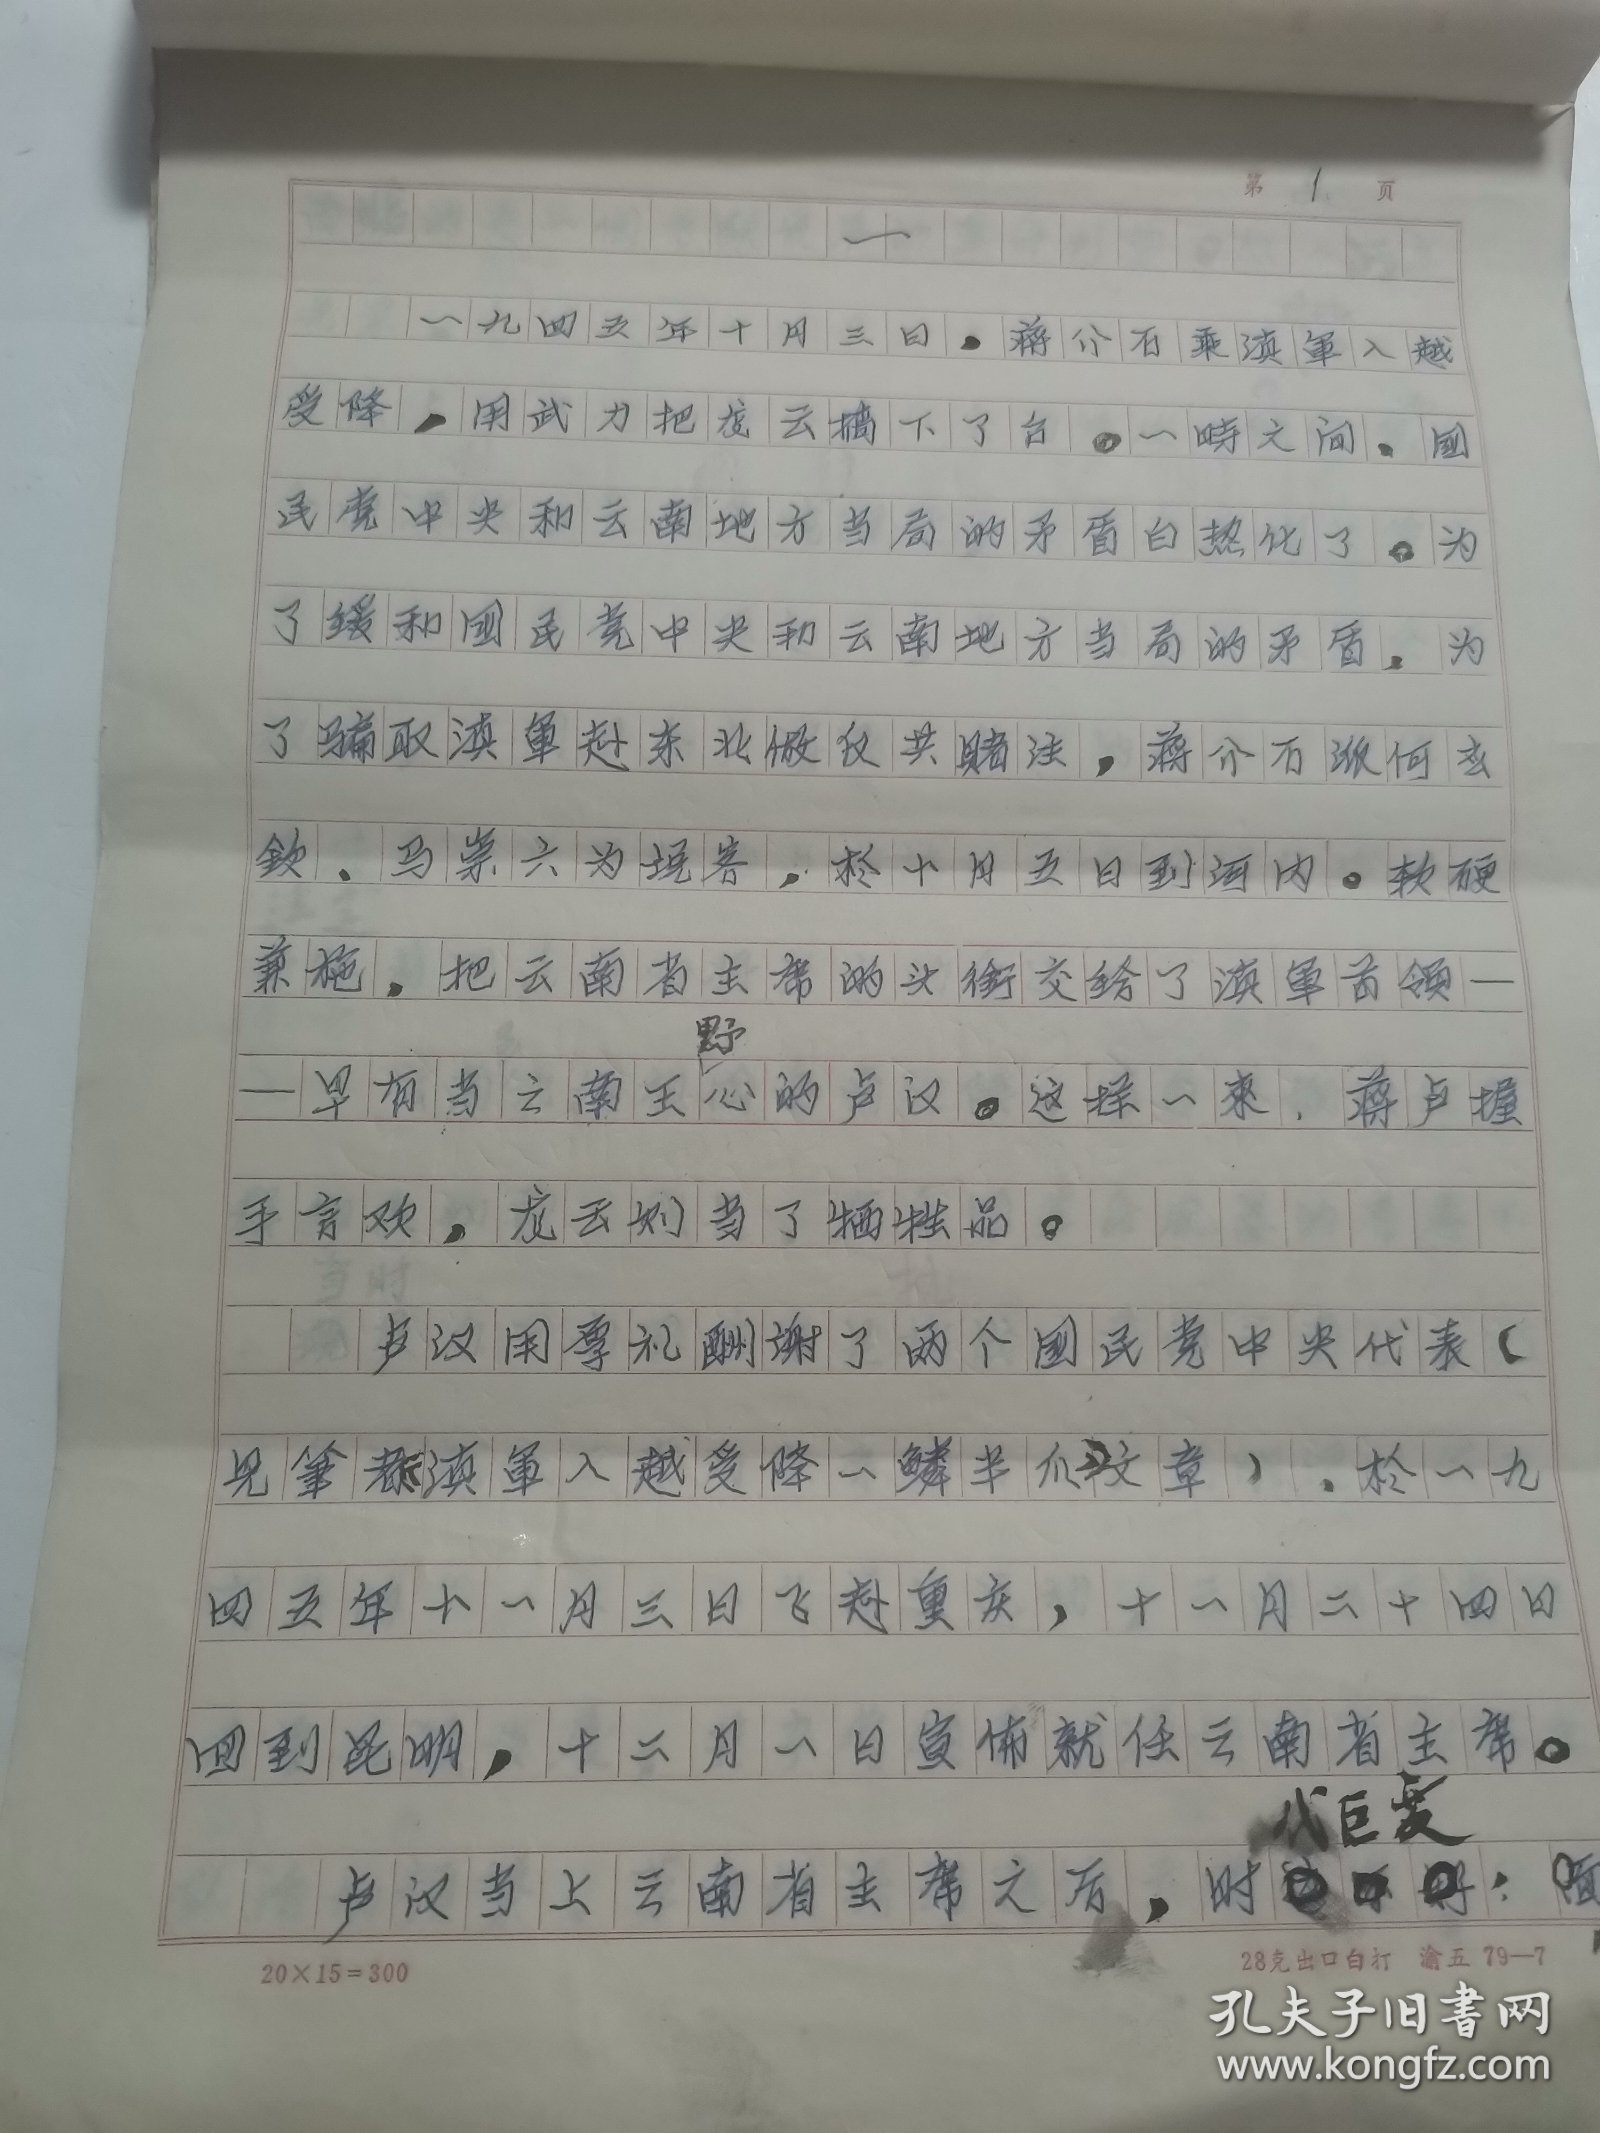 第 1 页
一
一九四五年十月三日，蒋介石乘滇軍入越
受降，用武力把龙云搞下了台。一時之间，國
民党中央和云南地方当局的矛盾白热化了。为
了缓和國民党中央和云南地方当局的矛盾，为
了骗取滇軍赴东北做反共赌注，蒋介石派何应
钦、马崇六为说客，於十月五日到河内。软硬
兼施，把云南省主席的头衔交给了滇軍首领—
—早有当云南王野心的卢汉。这样一來，蒋卢握
手言欢，龙云则当了牺牲品。
卢汉用厚礼酬谢了两个國民党中央代表（
見筆者滇軍入越受降一鳞半爪文章），於一九
四五年十一月三日飞赴重庆，十一月二十四日
回到昆明，十二月一日宣佈就任云南省主席。
代巨变
卢汉当上云南省主席之后，时
20×15=300
28克出口白打 渝五 79—7
孔夫子旧書网
www.kongfz.com